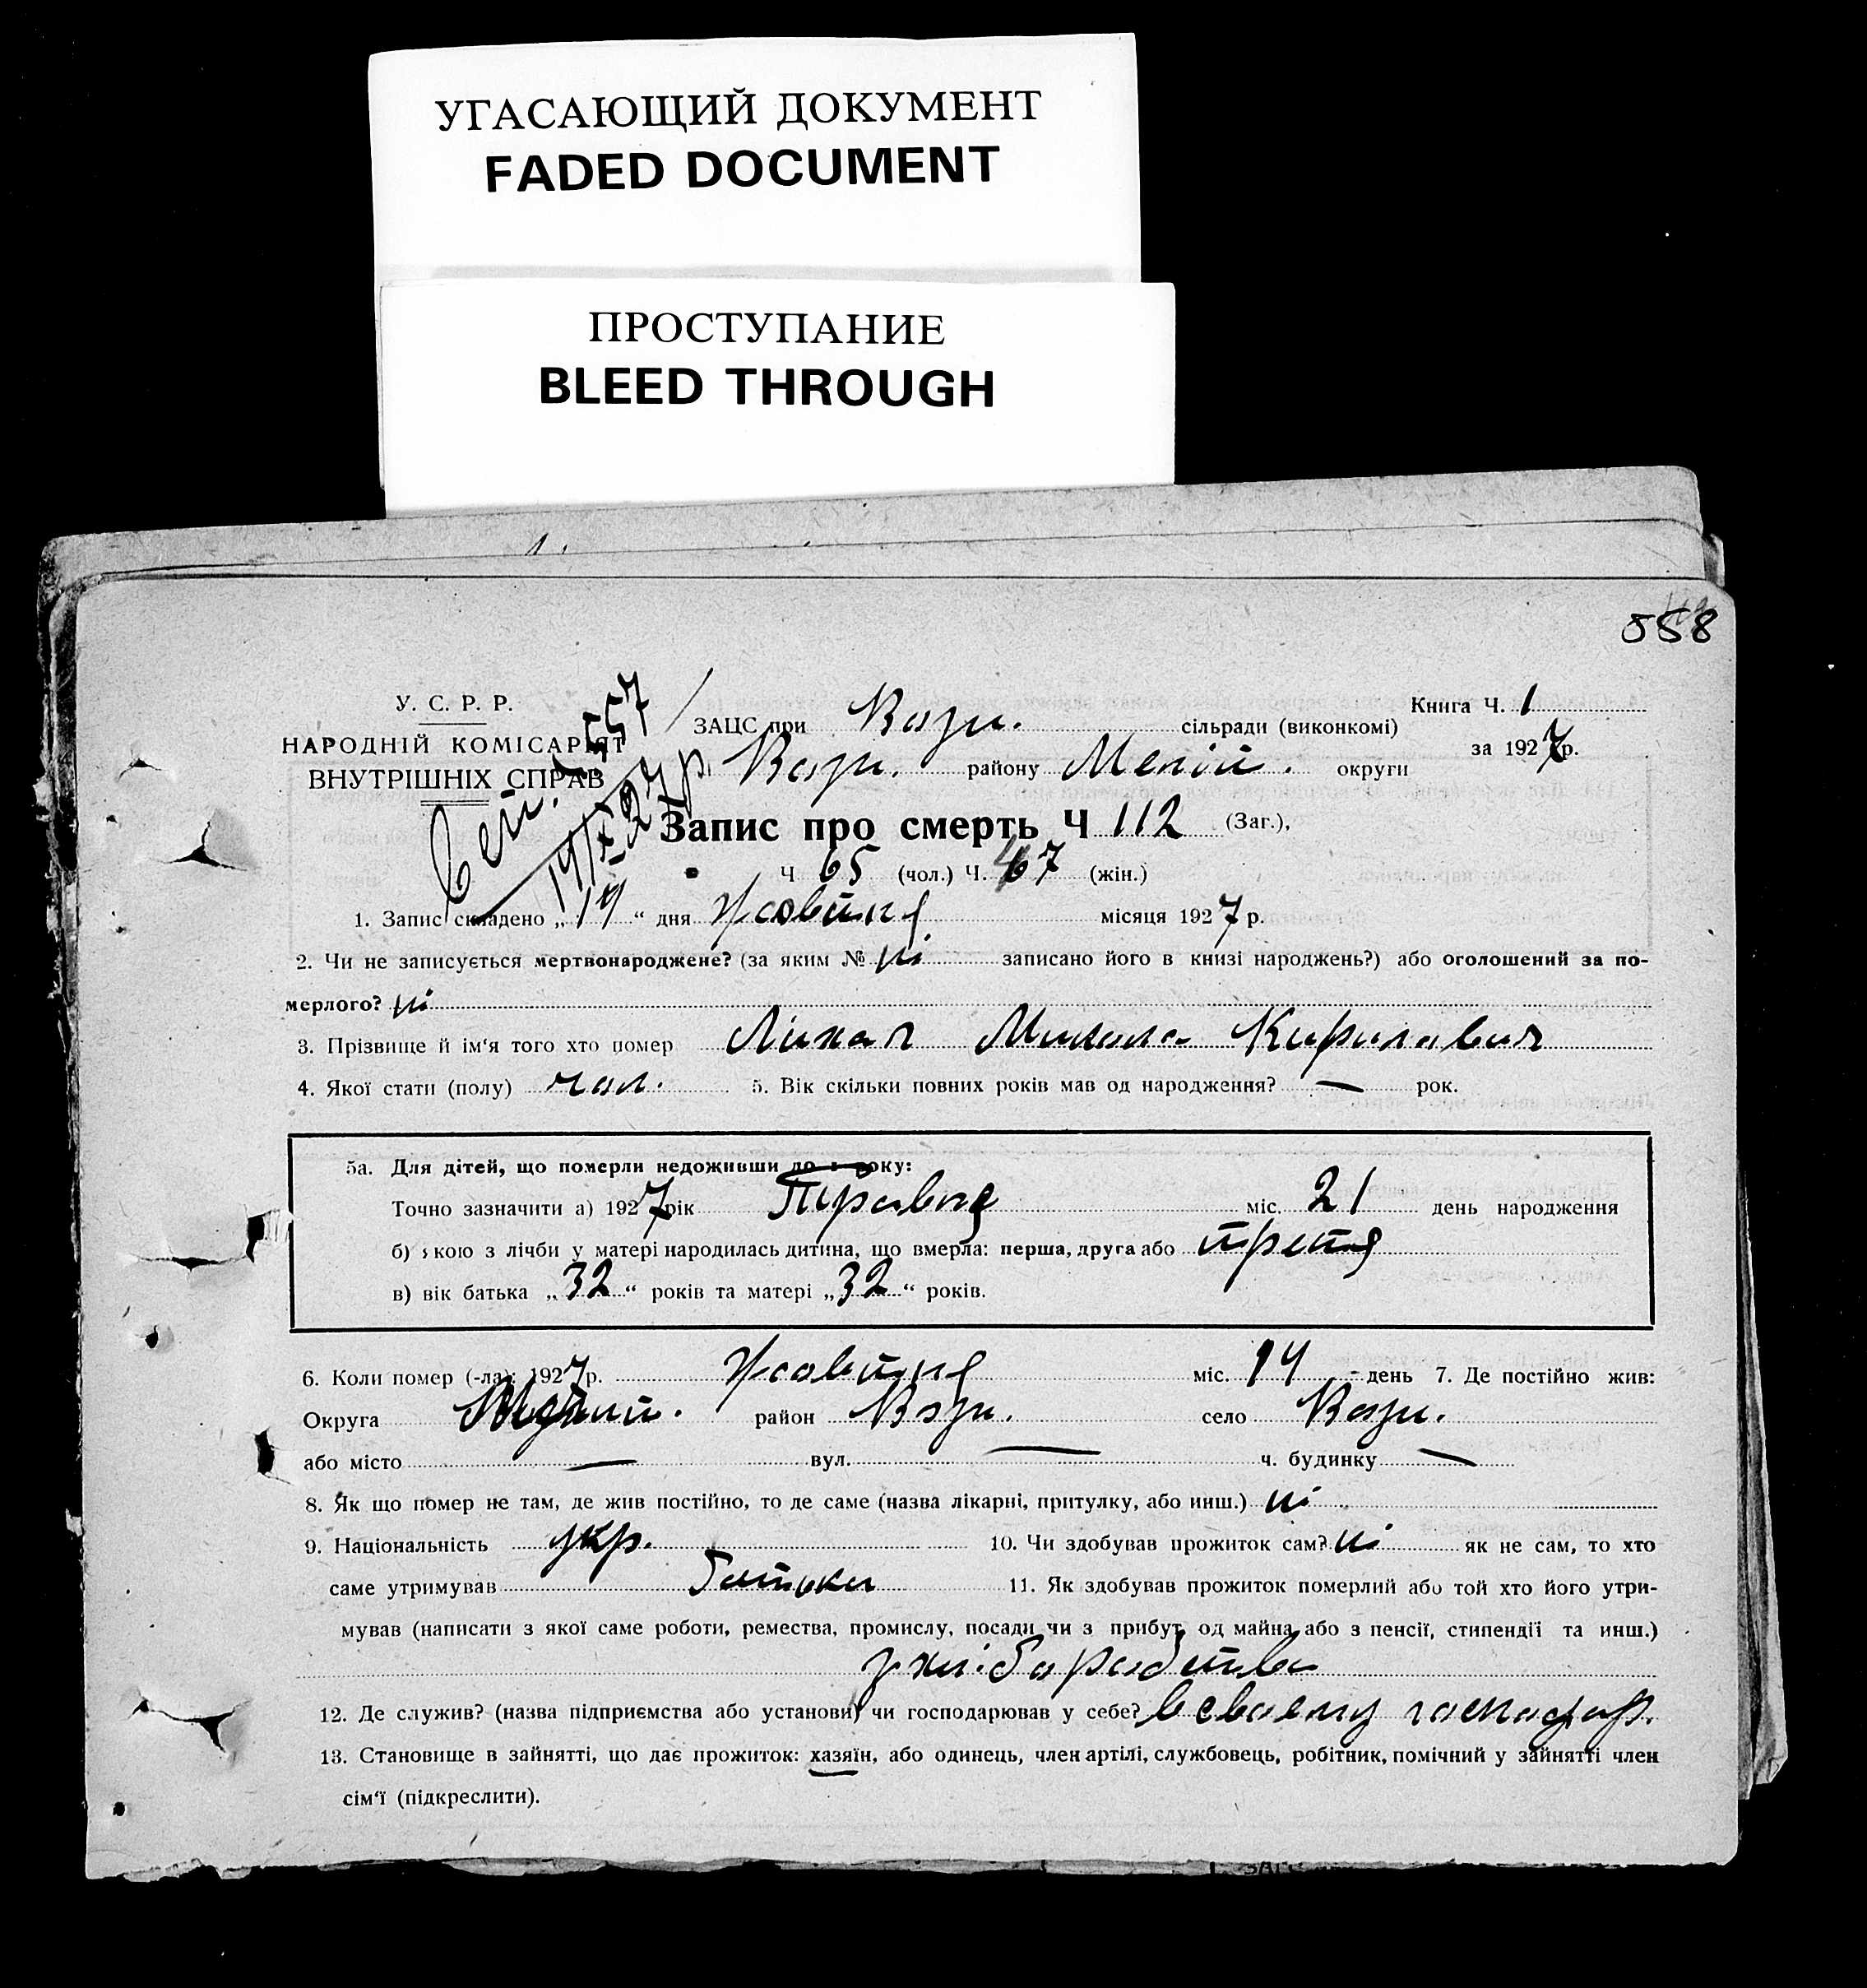 УГАСАЮЩИЙ ДОКУМЕНТ
FADED DOCUMENT
ПРОСТУПАНИЕ
BLEED THROUGH
558
У. С. Р. Р.
НАРОДНІЙ КОМІСАРІЯТ
ВНУТРІШНІХ СПРАВ
557
14/X 27 р.
ЗАЦС при сільради (виконкомі)
Книга Ч. 1
району округи
за 1927 р.
Запис про смерть Ч 112 (Заг.),
Ч 65 (чол.) Ч. 47 (жін.)
1. Запис складено „ 14 “ дня Жовтня місяця 1927 р.
2. Чи не записується мертвонароджене? (за яким № ні записано його в книзі народжень?) або оголошений за по-
мерлого? ні
3. Прізвище й ім'я того хто помер Лихач Микола Кирилович
4. Якої стати (полу) чол. 5. Вік скільки повних років мав од народження? — рок.
5а. Для дітей, що померли недоживши до 1 року:
Точно зазначити а) 1927 рік Травня міс. 21 день народження
б) якою з лічби у матері народилась дитина, що вмерла: перша, друга або третя
в) вік батька „ 32 “ років та матері „ 32 “ років.
6. Коли помер (-ла): 1927 р. Жовтня міс. 14 день 7. Де постійно жив:
Округа район село
або місто — вул. — ч. будинку —
8. Як що помер не там, де жив постійно, то де саме (назва лікарні, притулку, або инш.) ні
9. Національність укр. 10. Чи здобував прожиток сам? ні як не сам, то хто
саме утримував батьки 11. Як здобував прожиток померлий або той хто його утри-
мував (написати з якої саме роботи, ремества, промислу, посади чи з прибут. од майна або з пенсії, стипендії та инш.)
з хліборобства
12. Де служив? (назва підприємства або установи) чи господарював у себе? в своему господар.
13. Становище в зайнятті, що дає прожиток: хазяїн, або одинець, член артілі, службовець, робітник, помічний у зайнятті член
сім'ї (підкреслити).